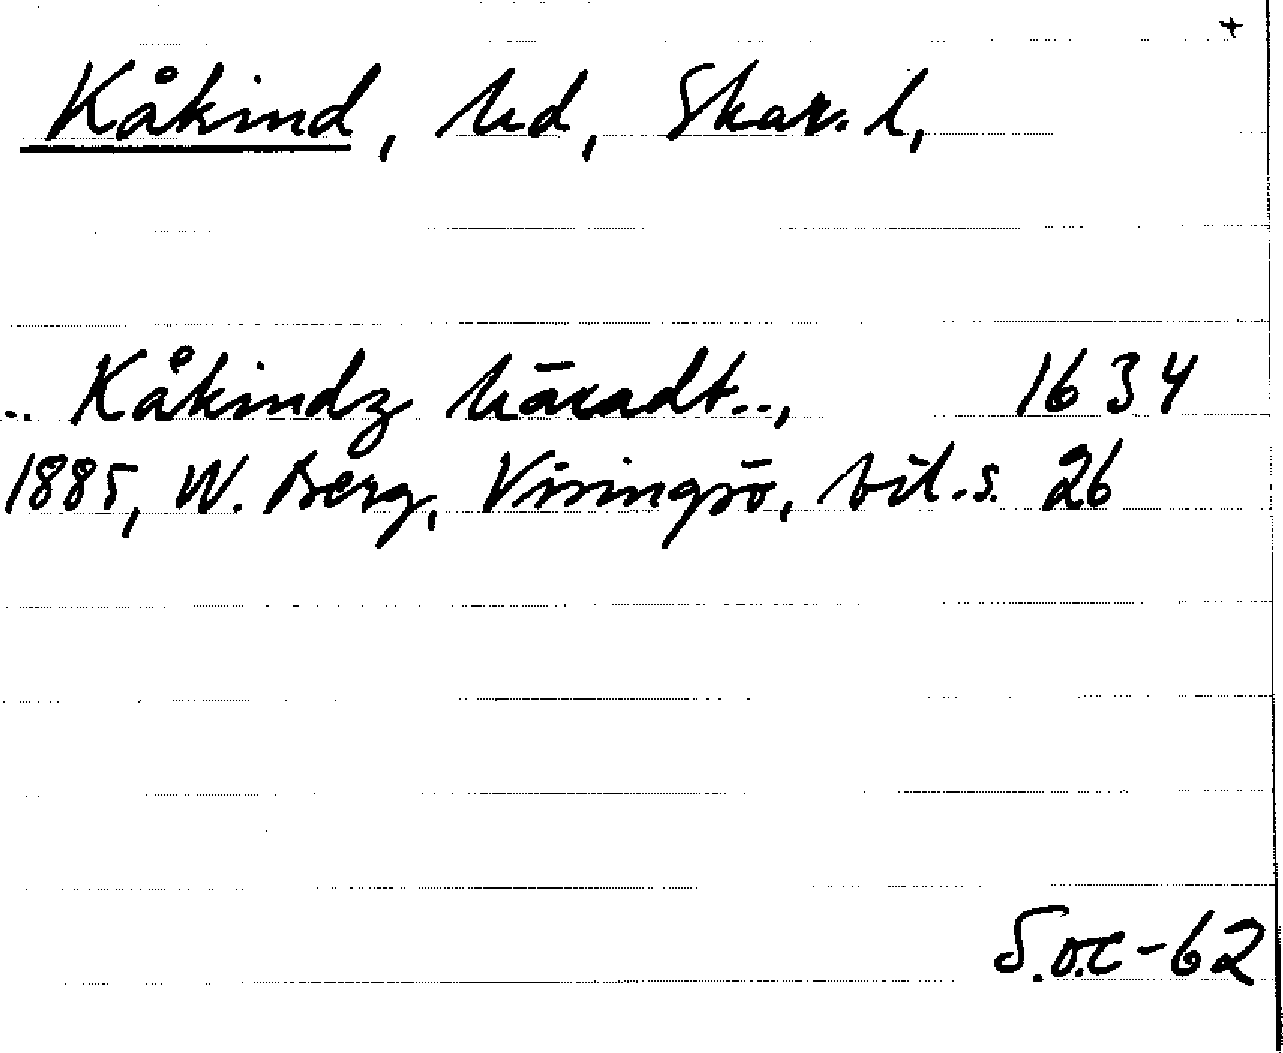 +
Kåkind, hd, Skar. l,
.. Kåkindz häradt.., 1634
1885, W. Berg, Visingsö, bil. s. 26
S.o.c-62